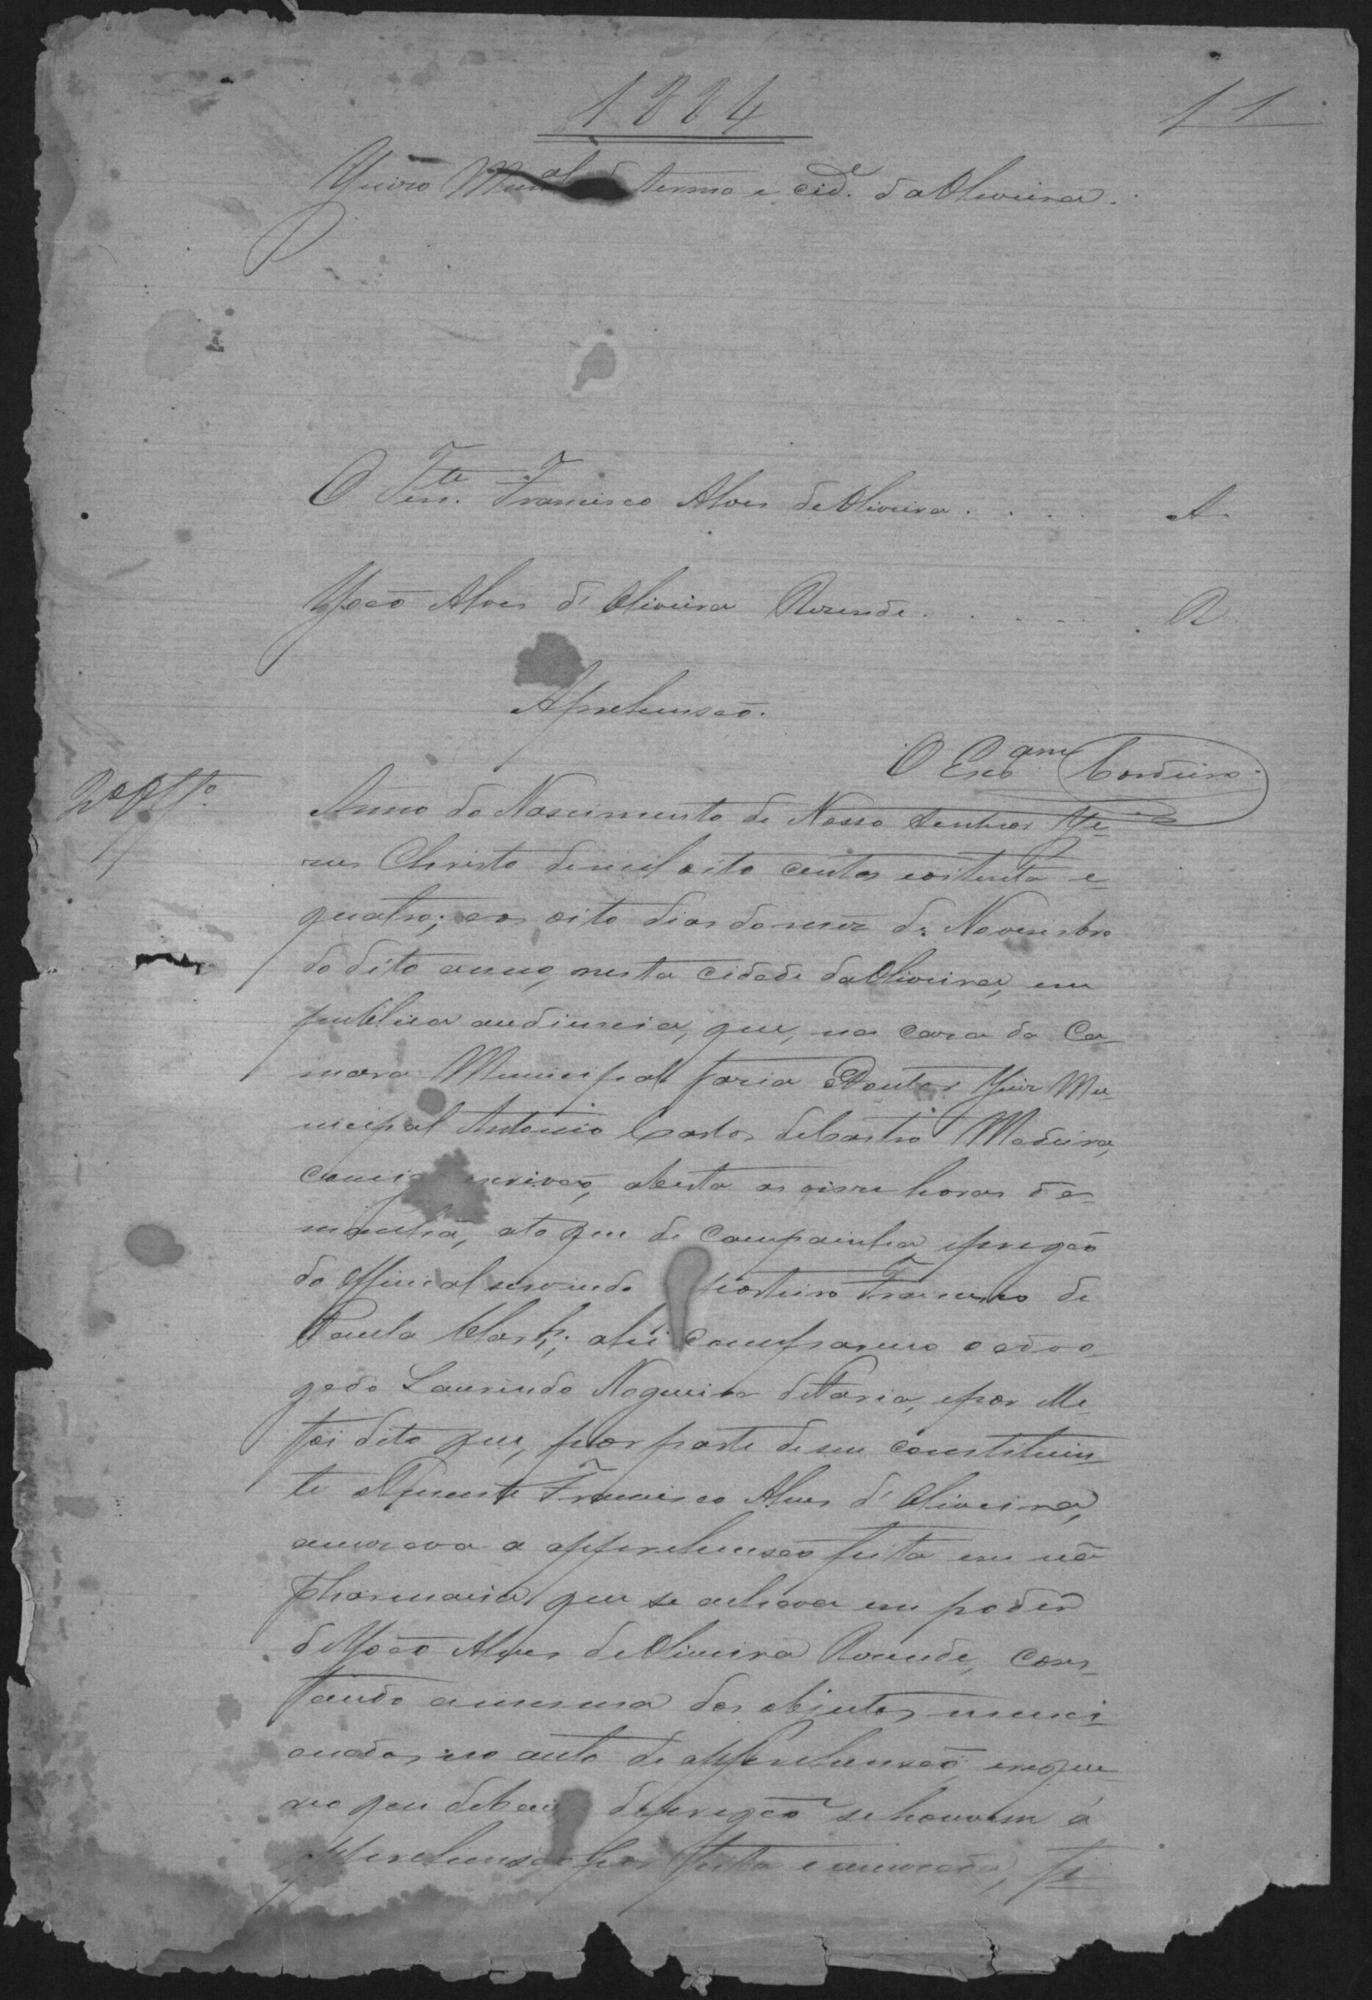 1884
11
Juizo Mun.al do termo e cid.e da Oliveira.
O Ten.te Francisco Alves de Oliveira . . . . A.
João Alves d'Oliveira Rezende . . . . . R.
Aprehensão.
O Escr.am Cordeiro.
2º Off.º
Anno do Nascimento de Nosso Senhor Je-
sus Christo de mil oito centos e oitenta e
quatro; aos oito dias do mez de Novembro
do dito anno, nesta cidade da Oliveira, em
publica audiencia, que, na casa da Ca-
mara Municipal fazia o Doutor Juiz Mu-
nicipal Antonio Carlos de Castro Madeira,
comigo escrivão, aberta as onze horas da
manhã, a toque de campainha, e pregão
do Official servindo porteiro Francisco de
Paula; ahi compareceo o advo-
gado Laurindo Nogueira de Faria, e por elle
foi dito que, por parte de seu constituin-
te o Tenente Francisco Alves d'Oliveira,
accusava a apprehensão feita em uma
pharmacia, que se achava em poder
de João Alves de Oliveira Rezende, cons-
tando a mesma dos objectos menci-
onados no auto de apprehensão, e reque-
reo que debaixo de pregão se houvesse a
apprehensão por feita e accusada,